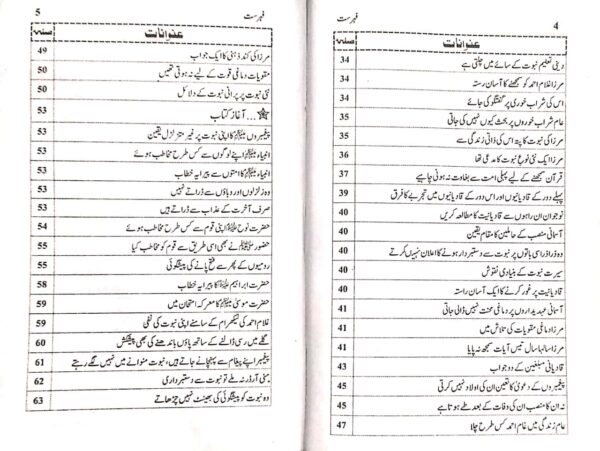 4 فہرست
صفحہ عنوانات
34 دینی تعلیم نبوت کے سائے میں چلتی ہے
34 مرزا غلام احمد کو سمجھنے کا آسان رستہ
34 اس کی شراب خوری پر گفتگو کی جائے
35 عام شراب خوروں پر بحث کیوں نہیں کی جاتی
35 مرزا کی نبوت کا پتہ اس کی ذاتی زندگی سے
36 مرزا ایک نئی نوع نبوت کا مدعی تھا
37 قرآن سمجھنے کے لیے پہلی امت سے بغاوت نہ ہونی چاہیے
39 پہلے دور کے قادیانیوں اور اس دور کے قادیانیوں میں تجربے کا فرق
40 نوجوان ان راہوں سے قادیانیت کا مطالعہ کریں
40 آسمانی منصب کے حاملین کا مقام یقین
40 وہ ذرا ذرا سی باتوں پر نبوت سے دستبردار ہونے کا اعلان نہیں کرتے
40 سیرت نبوت کے بنیادی نقوش
40 قادیانیت پر غور کرنے کا ایک آسان راستہ
41 آسمانی عہدیداروں پر دماغی محنت نہیں ڈالی جاتی
41 مرزا دماغی مقویات کی تلاش میں
41 مرزا سالہا سال تیس آیات سمجھ نہ پایا
43 قادیانی مبلغین کے دو جواب
45 پیغمبروں کے دعویٰ کا تعین ان کی اولاد نہیں کرتی
45 نہ ان کا منصب ان کی وفات کے بعد طے ہوتا ہے
47 عام زندگی میں غلام احمد کس طرح چلا
5 فہرست
صفحہ عنوانات
49 مرزا کی کند ذہنی کا ایک جواب
50 مقویات دماغی قوت کے لیے نہ ہوتی تھیں
50 نئی نبوت پر پرانی نبوت کے دلائل
53 ...آغاز کتاب
53 پیغمبروں ﷺ کا اپنی نبوت پر غیر متزلزل یقین
53 انبیاء ﷺ اپنے لوگوں سے کس طرح مخاطب ہوئے
53 انبیاء ﷺ کا امتوں سے پیرایہ خطاب
53 وہ زلزلوں اور وباؤں سے ڈراتے نہیں
53 صرف آخرت کے عذاب سے ڈراتے ہیں
54 حضرت نوح اپنی قوم سے کس طرح مخاطب ہوئے
55 حضور ﷺ نے بھی اسی طریق سے قوم کو مخاطب کیا
55 رومیوں کے پھر سے فتح پانے کی پیشگوئی
58 حضرت ابراہیم کا پیرایہ خطاب
59 حضرت موسیٰ کا معرکہ امتحان میں
59 غلام احمد کی لیکھرام کے سامنے اپنی نبوت کی نفی
60 گلے میں رسی ڈالنے کے ساتھ پاؤں باندھنے کی بھی پیشکش
61 پیغمبر اپنے پیغام سے پہچانے جاتے ہیں، نبوت منوانے میں نہیں لگے رہتے
62 منی آرڈر نہ ملے تو نبوت سے دستبرداری
63 وہ نبوت کو پیشگوئی کی بھینٹ نہیں چڑھاتے